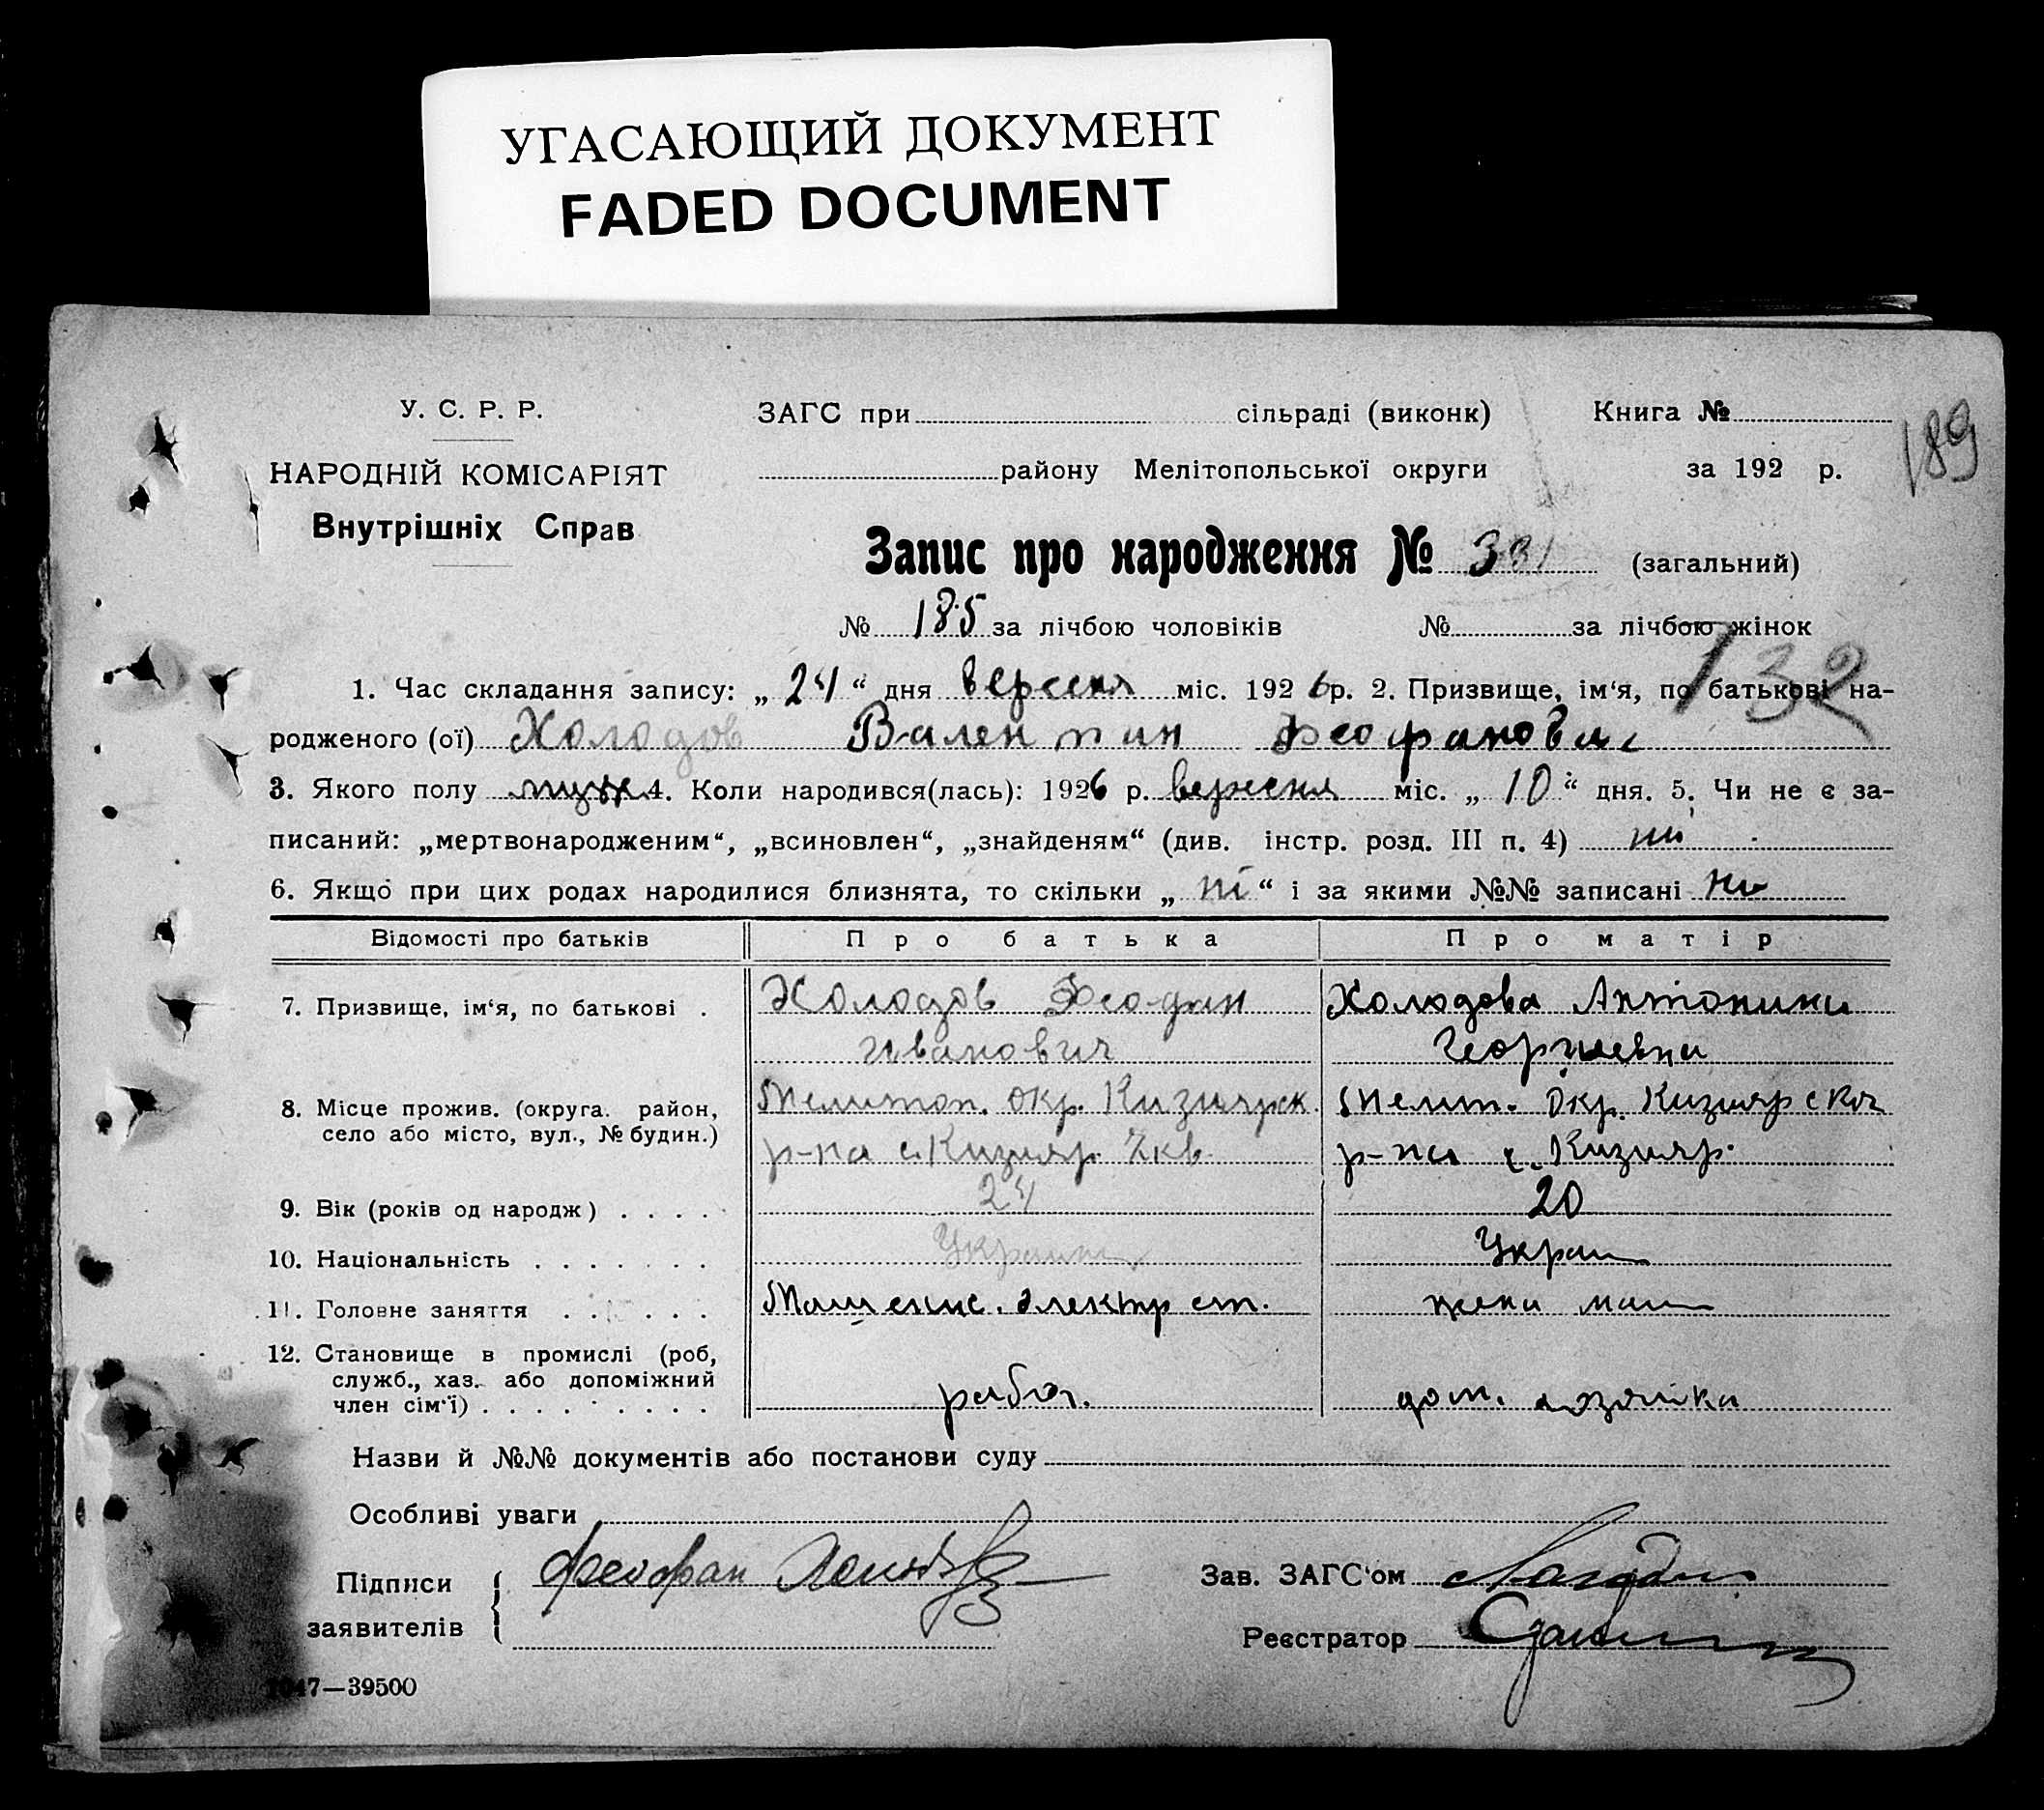 УГАСАЮЩИЙ ДОКУМЕНТ
FADED DOCUMENT
У. С. Р. Р.
ЗАГС при сільраді (виконк) Книга №
189
НАРОДНІЙ КОМІСАРІЯТ
району Мелітопольської округи за 192 р.
Внутрішніх Справ
Запис про народження № 331 (загальний)
№ 185 за лічбою чоловіків № за лічбою жінок
132
1. Час складання запису: „ 24 “ дня вересня міс. 1926 р. 2. Призвище, ім‘я, по батькові на-
родженого (ої) Холодов Валентин Феофанович
3. Якого полу муж 4. Коли народився(лась): 1926 р. вересня міс. „ 10 “ дня. 5. Чи не є за-
писаний: „мертвонародженим“, „всиновлен“, „знайденям“ (див. інстр. розд. III п. 4) ні
6. Якщо при цих родах народилися близнята, то скільки „ ні “ і за якими №№ записані ні
Відомості про батьків Про батька Про матір
7. Призвище, ім‘я, по батькові . Холодов Феофан Холодова Антонина
Иванович Георгиевна
8. Місце прожив. (округа. район, Мелитоп. окр. Кизиярск. Мелит. Окр. Кизиярског
село або місто, вул., № будин.) р-на с. Кизияр. 2кв. р-на с. Кизияр.
9. Вік (років од народж) . . . . 24 20
10. Національність . . . . . . . Украин Украин
11. Головне заняття . . . . . . Машинис. электр ст. жена маш
12. Становище в промислі (роб,
служб., хаз. або допоміжний
член сім‘ї) . . . . . . . . . рабоч. дом. хозяйка
Назви й №№ документів або постанови суду
Особливі уваги
Підписи Феофан Холодов Зав. ЗАГС‘ом
заявителів Реєстратор
47—39500